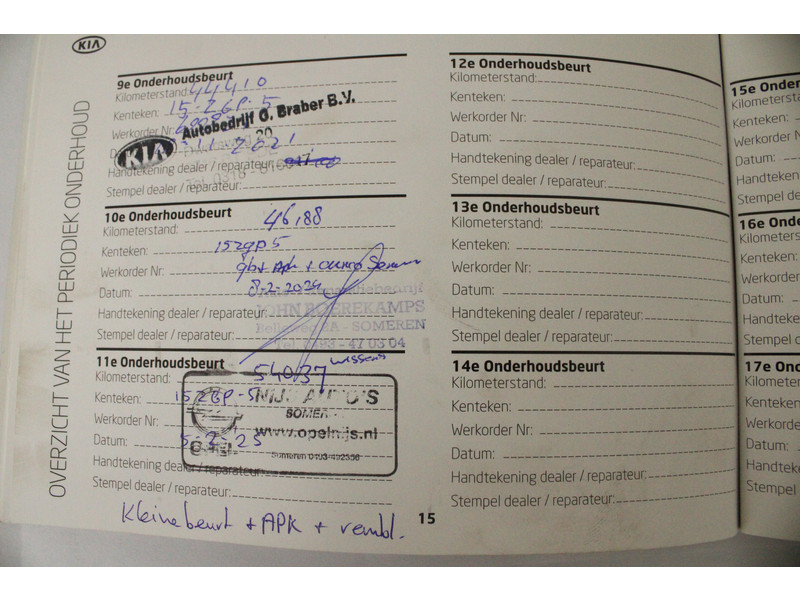 KIA
OVERZICHT VAN HET PERIODIEK ONDERHOUD
9e Onderhoudsbeurt
Kilometerstand: 44410
Kenteken: 15-ZGP-5
Werkorder Nr:
Autobedrijf G. Braber B.V.
KIA
11 2021
Handtekening dealer / reparateur:
Stempel dealer / reparateur:
10e Onderhoudsbeurt
Kilometerstand: 46188
Kenteken: 15zgp5
Werkorder Nr:
Datum: 8-2-2024
Handtekening dealer / reparateur:
JOHN BOEREKAMPS
SOMEREN
Stempel dealer / reparateur:
Tel. 0493-47 03 04
wissen
11e Onderhoudsbeurt
Kilometerstand: 54037
Kenteken: 15ZGP-5
NIJS AUTO'S
Werkorder Nr:
SOMER
www.opelnijs.nl
Datum: 5-2-25
Handtekening dealer / reparateur:
Stempel dealer / reparateur:
Kleine beurt + APK + rembl.
15
12e Onderhoudsbeurt
Kilometerstand:
Kenteken:
Werkorder Nr:
Datum:
Handtekening dealer / reparateur:
Stempel dealer / reparateur:
13e Onderhoudsbeurt
Kilometerstand:
Kenteken:
Werkorder Nr:
Datum:
Handtekening dealer / reparateur:
Stempel dealer / reparateur:
14e Onderhoudsbeurt
Kilometerstand:
Kenteken:
Werkorder Nr:
Datum:
Handtekening dealer / reparateur:
Stempel dealer / reparateur:
15e Onder
Kilometersta
Kenteken:
Werkorder N
Datum:
Handteken
Stempel de
16e Ond
Kilometers
Kenteken:
Werkorder
Datum:
Handteke
Stempel
17e On
Kilomete
Kenteke
Werkor
Datum:
Handte
Stempe